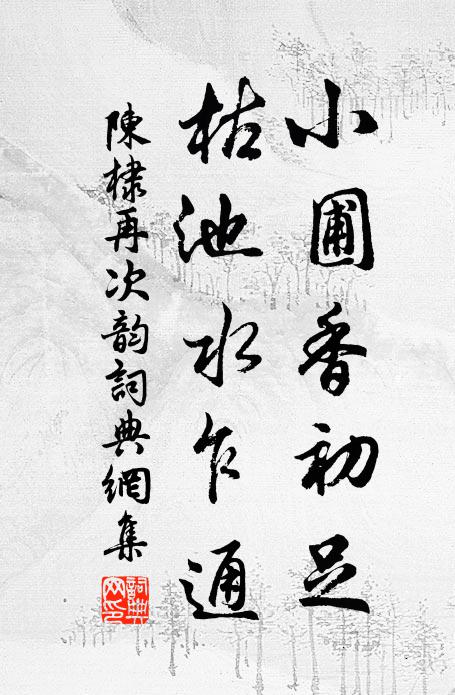 小圃香初足
枯池水乍通
陳棣再次韵詞典網集
詞典網印